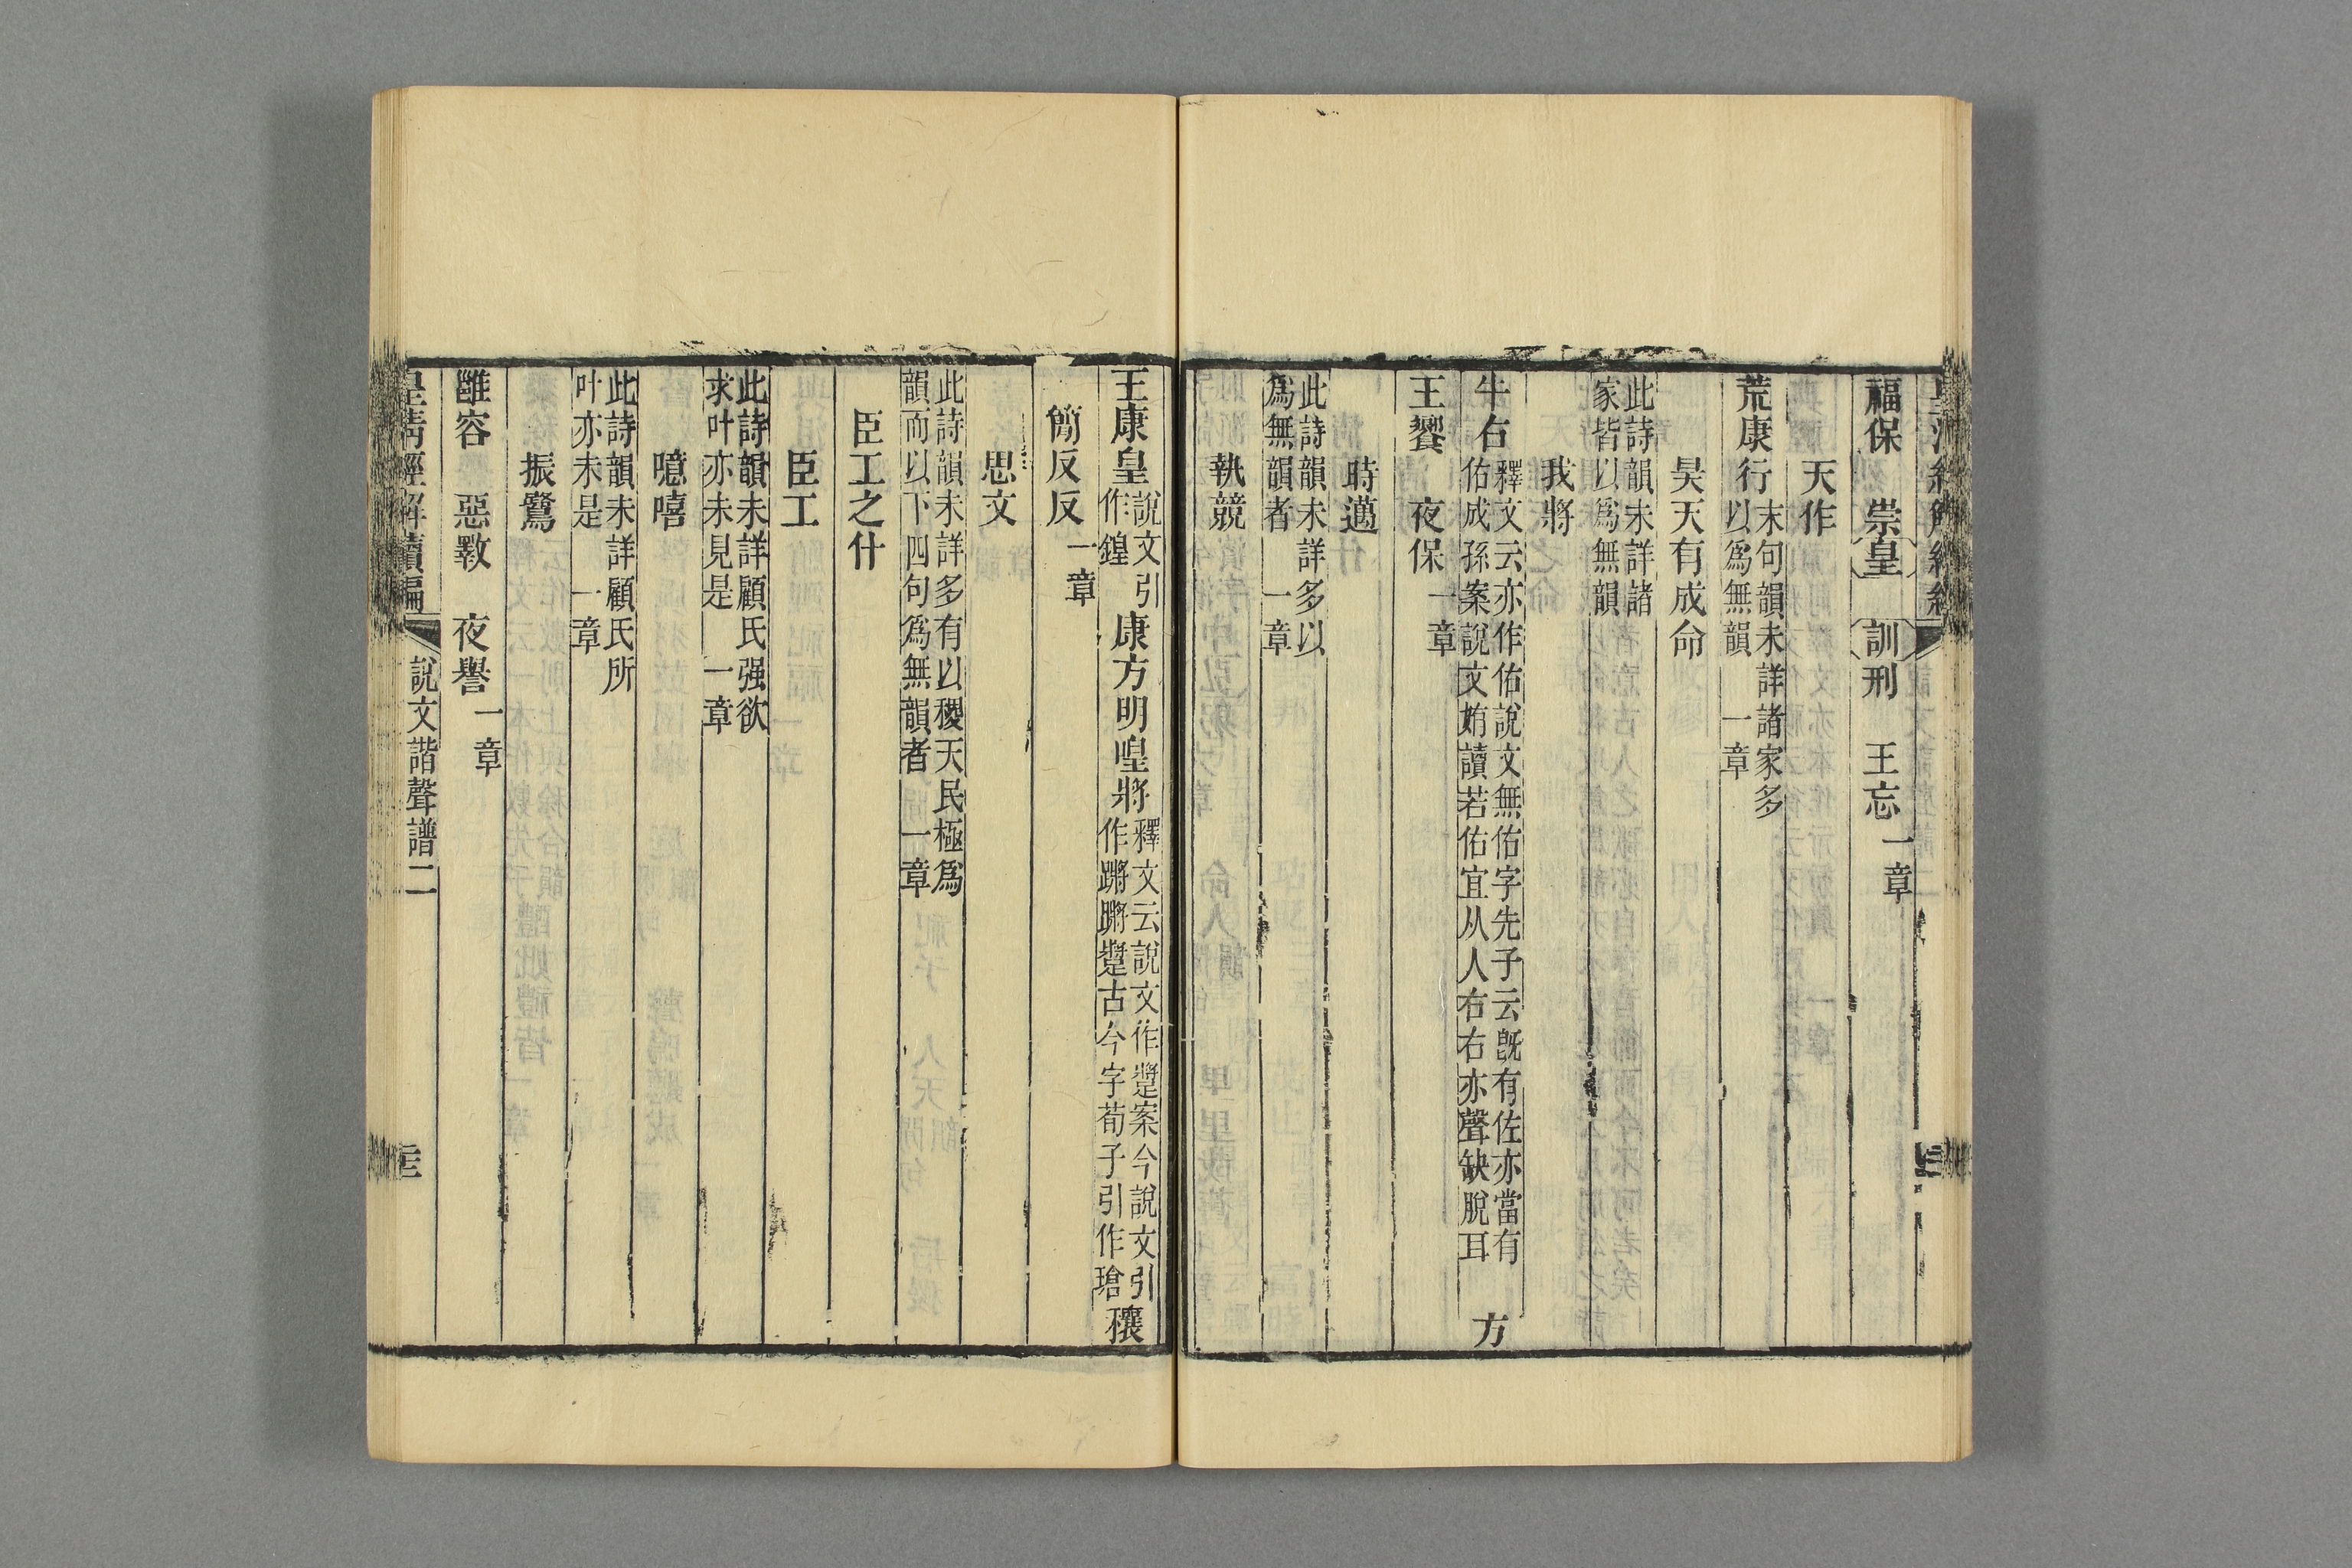 福保　崇皇　訓刑　王忘一章
天作
荒康行末句韻未詳諸家多以爲無韻　一章
昊天有成命
此詩韻未詳諸家皆以爲無韻
我將
牛右釋文云亦作佑說文無佑字先子云旣有佐亦當有佑成孫案說文姷讀若佑宜从人右右亦聲缺脫耳　方
王饗　夜保一章
時邁
此詩韻未詳多以爲無韻者　一章
執競
王康皇說文引作鍠　康方明喤將釋文云說文作䠞案今說文引作蹡蹡䠞古今字荀子引作瑲　穰
簡反反一章
思文
此詩韻未詳多有以稷天民極爲韻而以下四句爲無韻者　一章
臣工之什
臣工
此詩韻未詳顧氏强欲求叶亦未見是　一章
噫嘻
此詩韻未詳顧氏所叶亦未是　一章
振鷺
雝容　惡斁　夜譽一章
皇淸經解續編　說文諧聲譜二